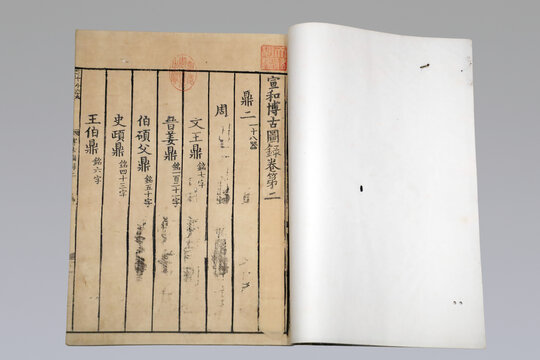 宣和博古圖錄卷第二
鼎二一十八器
周
文王鼎銘七字
晉姜鼎銘一百二十一字
伯碩父鼎銘五十字
史頙鼎銘四十三字
王伯鼎銘六字